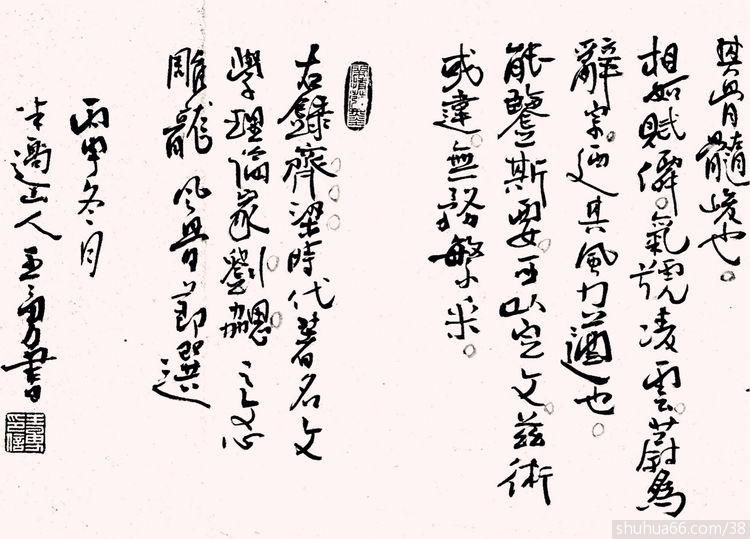 其骨髓峻也。
相如賦僊。氣號凌雲。蔚為
辭宗。迺其風力遒也。
能鑒斯要。可以定文。茲術
或違。無務繁采。
右錄齊梁時代著名文
學理論家劉勰之文心
雕龍風骨節選
丙申冬月
半邁山人王勇書
shuhua66.com/38